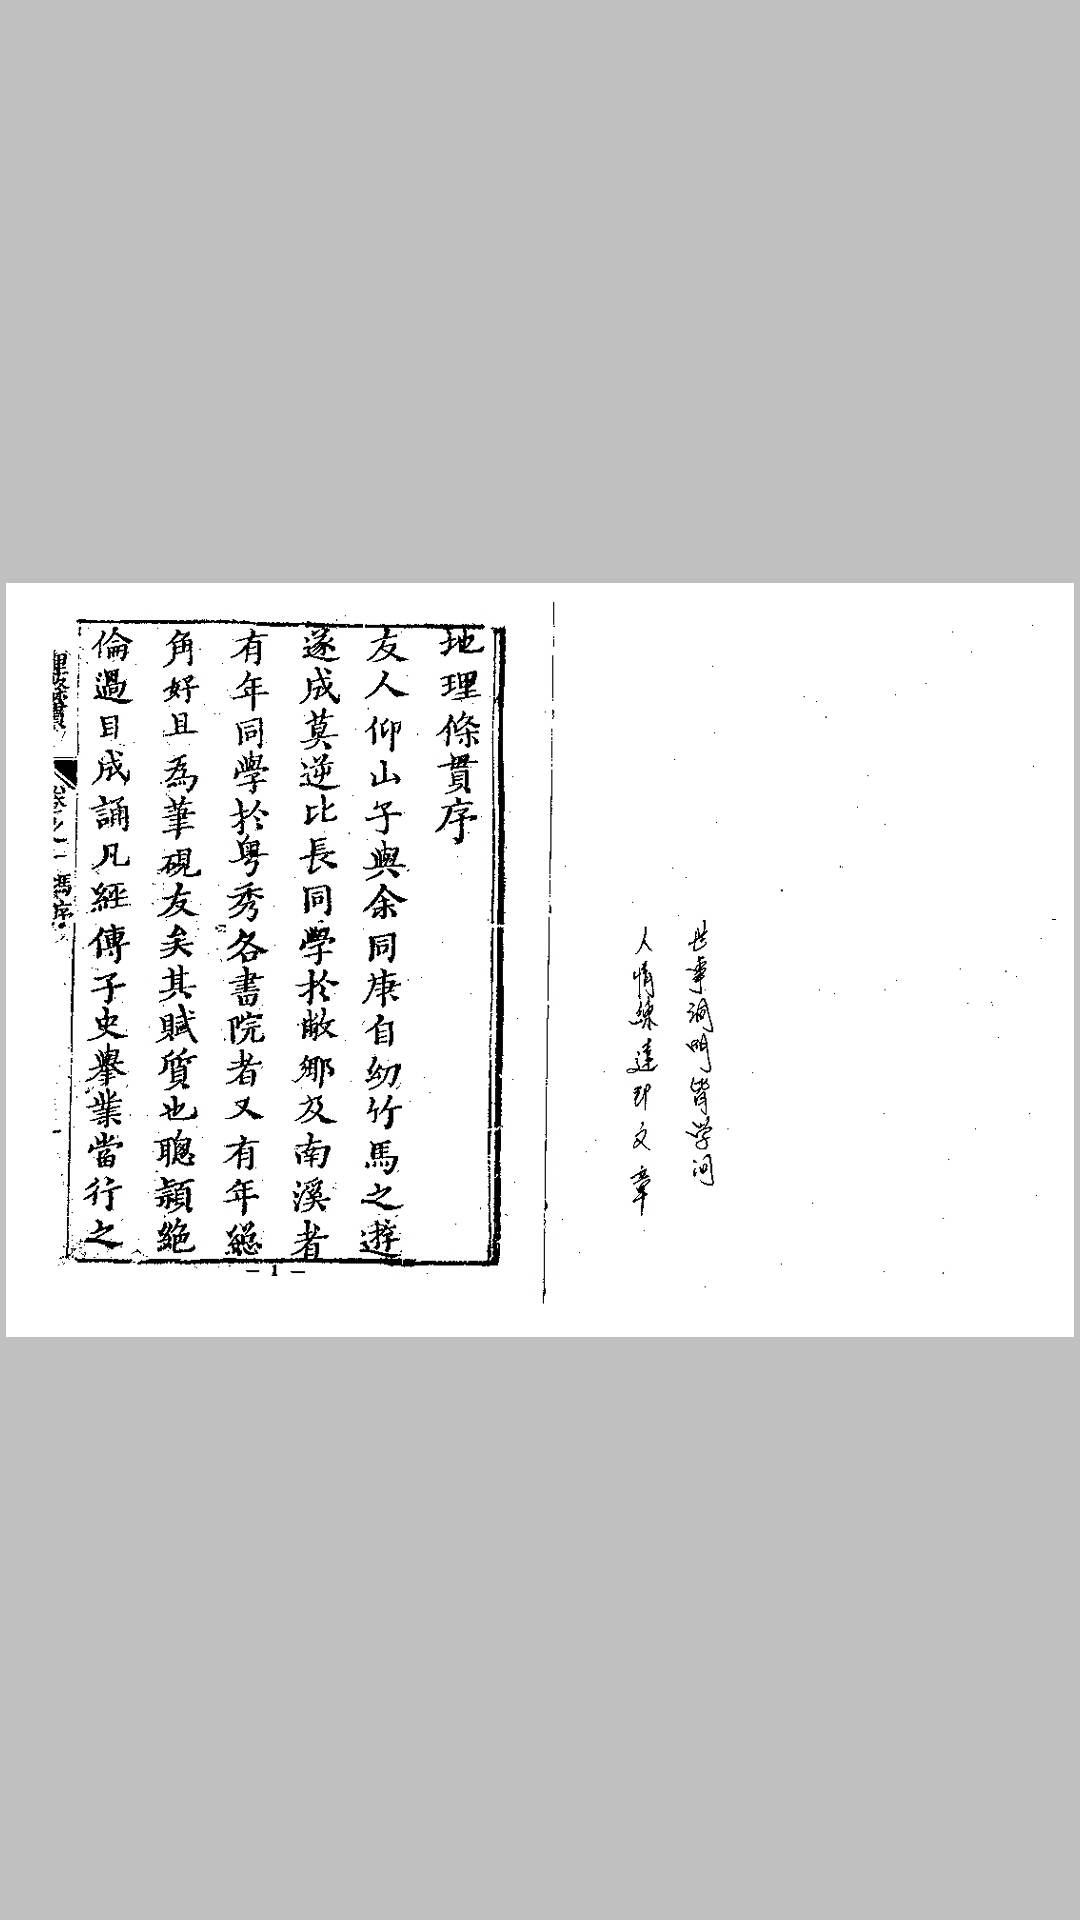 世事洞明皆学问
人情練達即文章
地理條貫序
友人仰山子與余同庚自幼竹馬之遊
遂成莫逆比長同學於敝鄉及南溪者
有年同學於粤秀各書院者又有年總
角好且為筆硯友矣其賦質也聰穎絶
倫過目成誦凡經傳子史舉業當行之
理條貫 卷之一 馮序
— 1 —